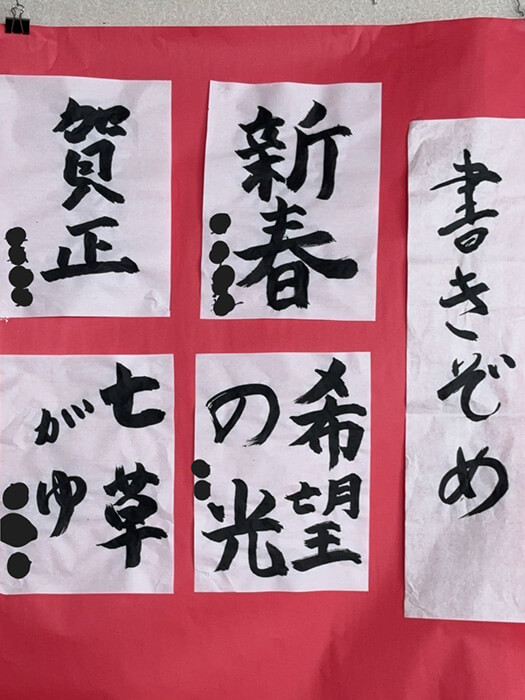 書きぞめ
新春
賀正
希望
の光
七草
がゆ